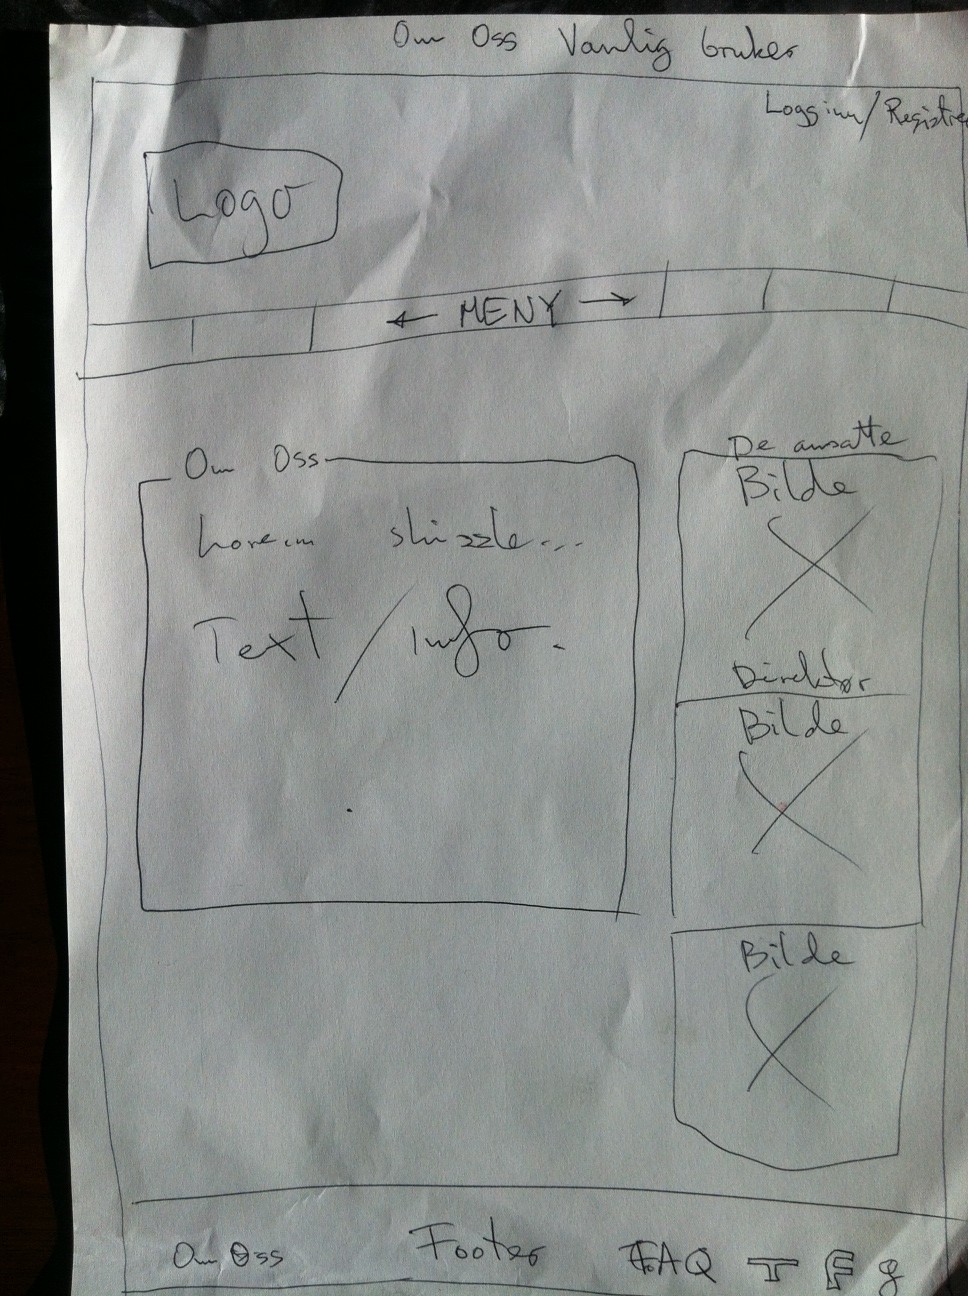 Om Oss Vanlig bruker
Logg inn/Registre
Logo
← MENY →
Om Oss
Lorem shizzle...
Text / info.
De ansatte
Bilde
Direktør
Bilde
Bilde
Om Oss Footer FAQ T F g